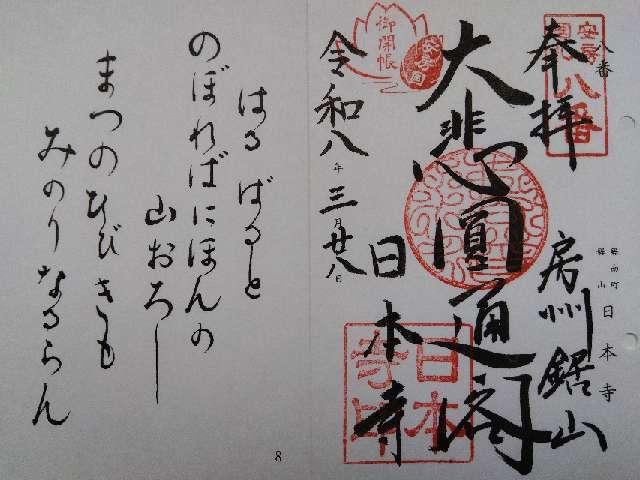 奉拝
八番
安房
国札
八番
房州鋸山
鋸南町
鋸山 日本寺
大悲圓通閣
御開帳
令和八年三月廿八日
日本寺
日本
寺印
はるばると
のぼればにほんの
山おろし
まつのひびきも
みのりなるらん
8